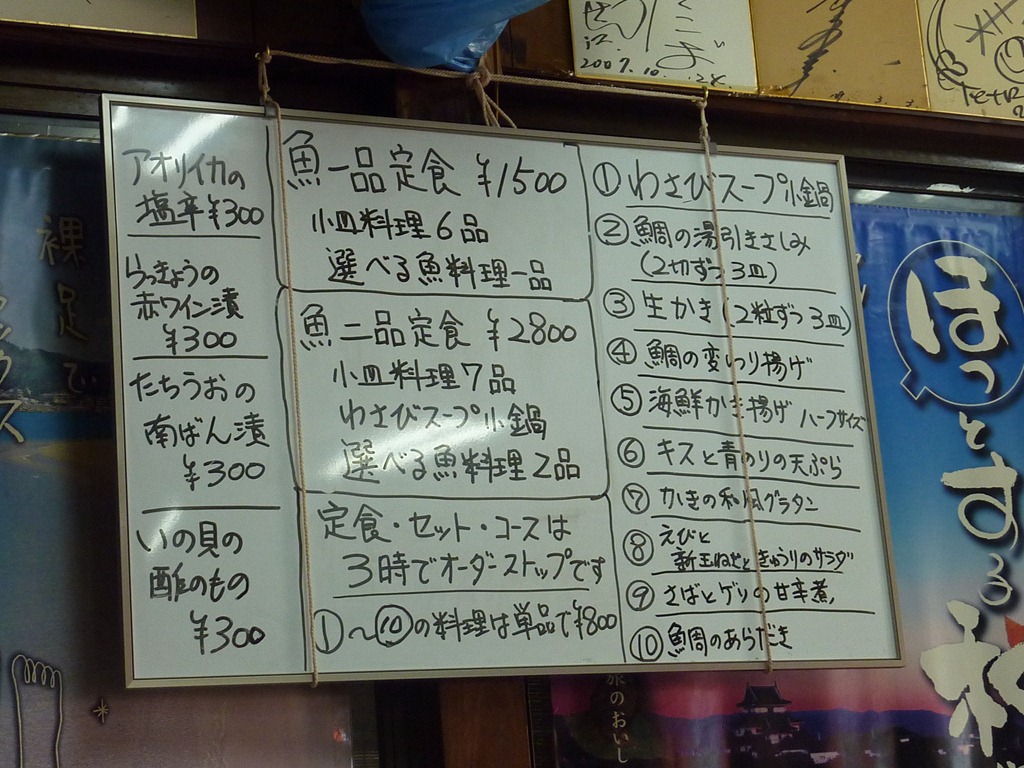 2007.10.24
アオリイカの
塩辛 ¥300
らっきょうの
赤ワイン漬
¥300
たちうおの
南ばん漬
¥300
いの貝の
酢のもの
¥300
魚一品定食 ¥1500
小皿料理6品
選べる魚料理一品
魚二品定食 ¥2800
小皿料理7品
わさびスープ小鍋
選べる魚料理2品
定食・セット・コースは
3時でオーダーストップです
①〜⑩の料理は単品で¥800
①わさびスープ小鍋
②鯛の湯引きさしみ
(2切ずつ3皿)
③生かき(2粒ずつ3皿)
④鯛の変わり揚げ
⑤海鮮かき揚げ ハーフサイズ
⑥キスと青のりの天ぷら
⑦かきの和風グラタン
⑧えびと
新玉ねぎときゅうりのサラダ
⑨さばとゲソの甘辛煮
⑩鯛のあらだき
裸足で
ほっとする
旅のおいし